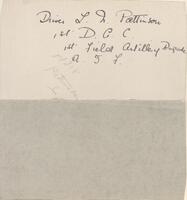 Driver L. N. Pattinson
1st D. A. C.
1st Field Artillery Brigade
A I F